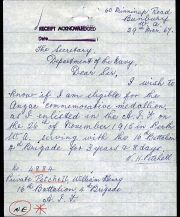 60 Binningup Road
Bunbury
W. A
29th Mar. 67.
RECEIPT ACKNOWLEDGED
Date
The Secretary,
Department of the Navy,
Dear Sir,
I wish to
know if I am eligible for the
Anzac commemorative medallion,
as I enlisted in the A.I.F. on
the 26th of November 1915 in Perth
W.A. serving with the 16th Battalion
4th Brigade for 3 years & 8 days.
W. H. Patchell
No. 4884
Private Patchell, William Henry
16th Battalion, 4th Brigade
A. I. F.
NE